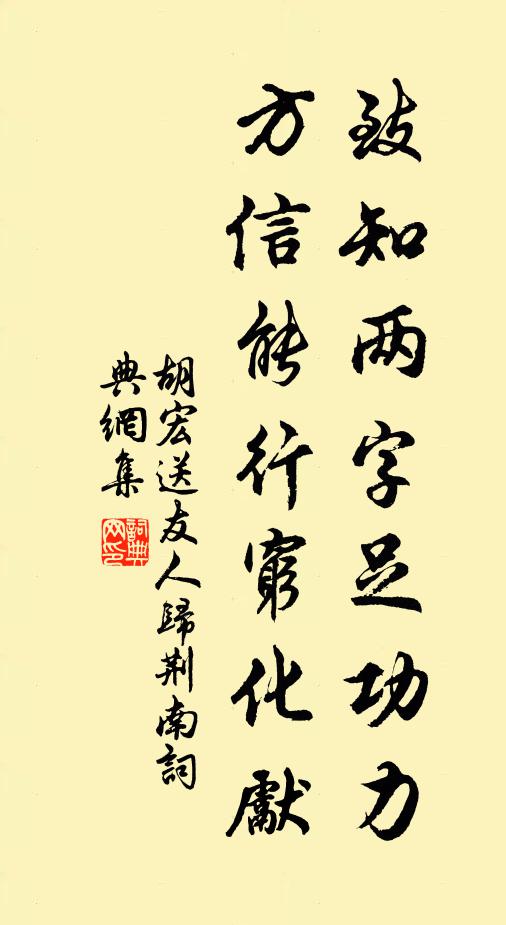 致知两字足功力
方信能行窮化獻
胡宏送友人歸荆南詞
典網集
詞典
网印